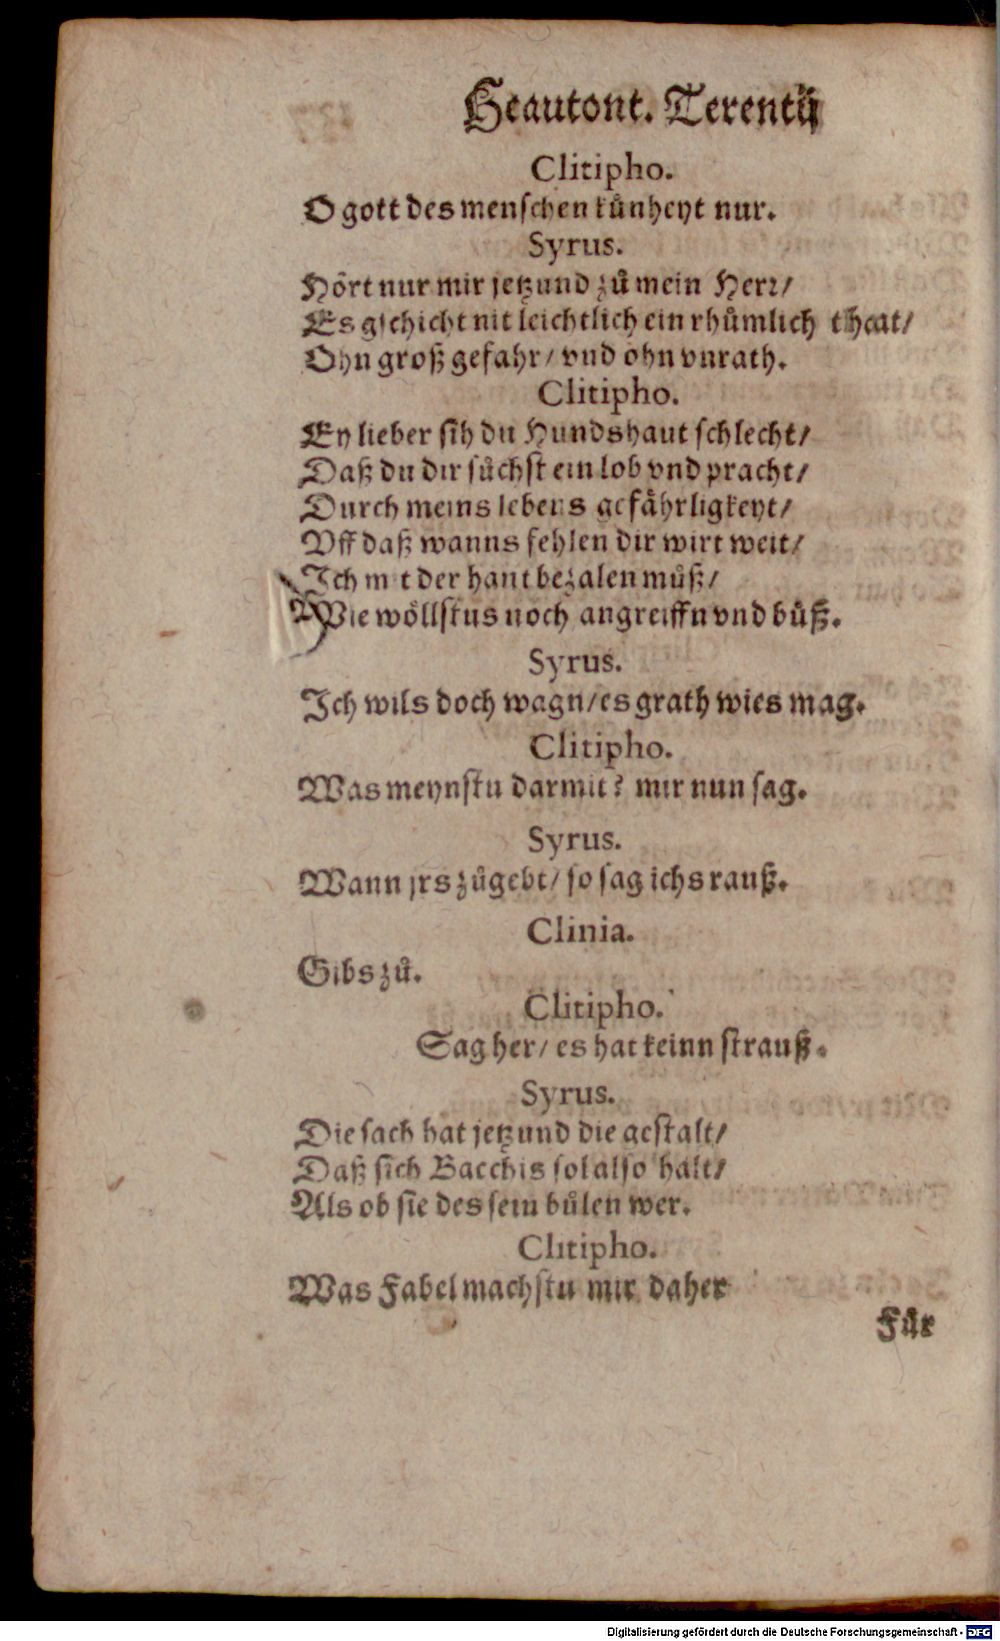 Heautont. Terentij
Clitipho.
O gott des menſchen kuͤnheyt nur.
Syrus.
Hoͤrt nur mir jetzund zuͦ mein Herr/
Es gſchicht nit leichtlich ein rhuͤmlich theat/
Ohn groß gefahr/ vnd ohn vnrath.
Clitipho.
Ey lieber ſih du Hundshaut ſchlecht/
Daß du dir ſuͤchſt ein lob vnd pracht/
Durch meins lebens gefaͤhrligkeyt/
Vff daß wanns fehlen dir wirt weit/
Ich mit der haut bezalen muͤß/
Wie woͤllſtus noch angreiffn vnd buͤß.
Syrus.
Ich wils doch wagn/ es grath wies mag.
Clitipho.
Was meynſtu darmit? mir nun ſag.
Syrus.
Wann jrs zuͦgebt/ ſo ſag ichs rauß.
Clinia.
Gibs zuͦ.
Clitipho.
Sag her/ es hat keinn ſtrauß.
Syrus.
Die ſach hat jetzund die geſtalt/
Daß ſich Bacchis ſol alſo halt/
Als ob ſie des ſein buͦlen wer.
Clitipho.
Was Fabel machſtu mir daher
Fuͤr
Digitalisierung gefördert durch die Deutsche Forschungsgemeinschaft - DFG